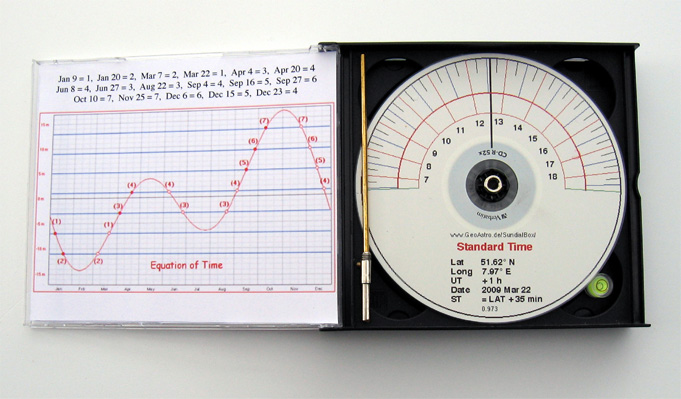 Jan 9 = 1, Jan 20 = 2, Mar 7 = 2, Mar 22 = 1, Apr 4 = 3, Apr 20 = 4
Jun 8 = 4, Jun 27 = 3, Aug 22 = 3, Sep 4 = 4, Sep 16 = 5, Sep 27 = 6
Oct 10 = 7, Nov 25 = 7, Dec 6 = 6, Dec 15 = 5, Dec 23 = 4
(7) (7)
(6) (6)
(5) (5)
(4) (4) (4) (4)
(3) (3) (3)
(1) (1)
(2) (2)
Equation of Time
Jan Feb Mar Apr May Jun Jul Aug Sep Oct Nov Dec
7 8 9 10 11 12 13 14 15 16 17 18
CD-R 52x
Verbatim
www.GeoAstro.de/SundialBox/
Standard Time
Lat 51.62° N
Long 7.97° E
UT +1 h
Date 2009 Mar 22
ST = LAT +35 min
0.973